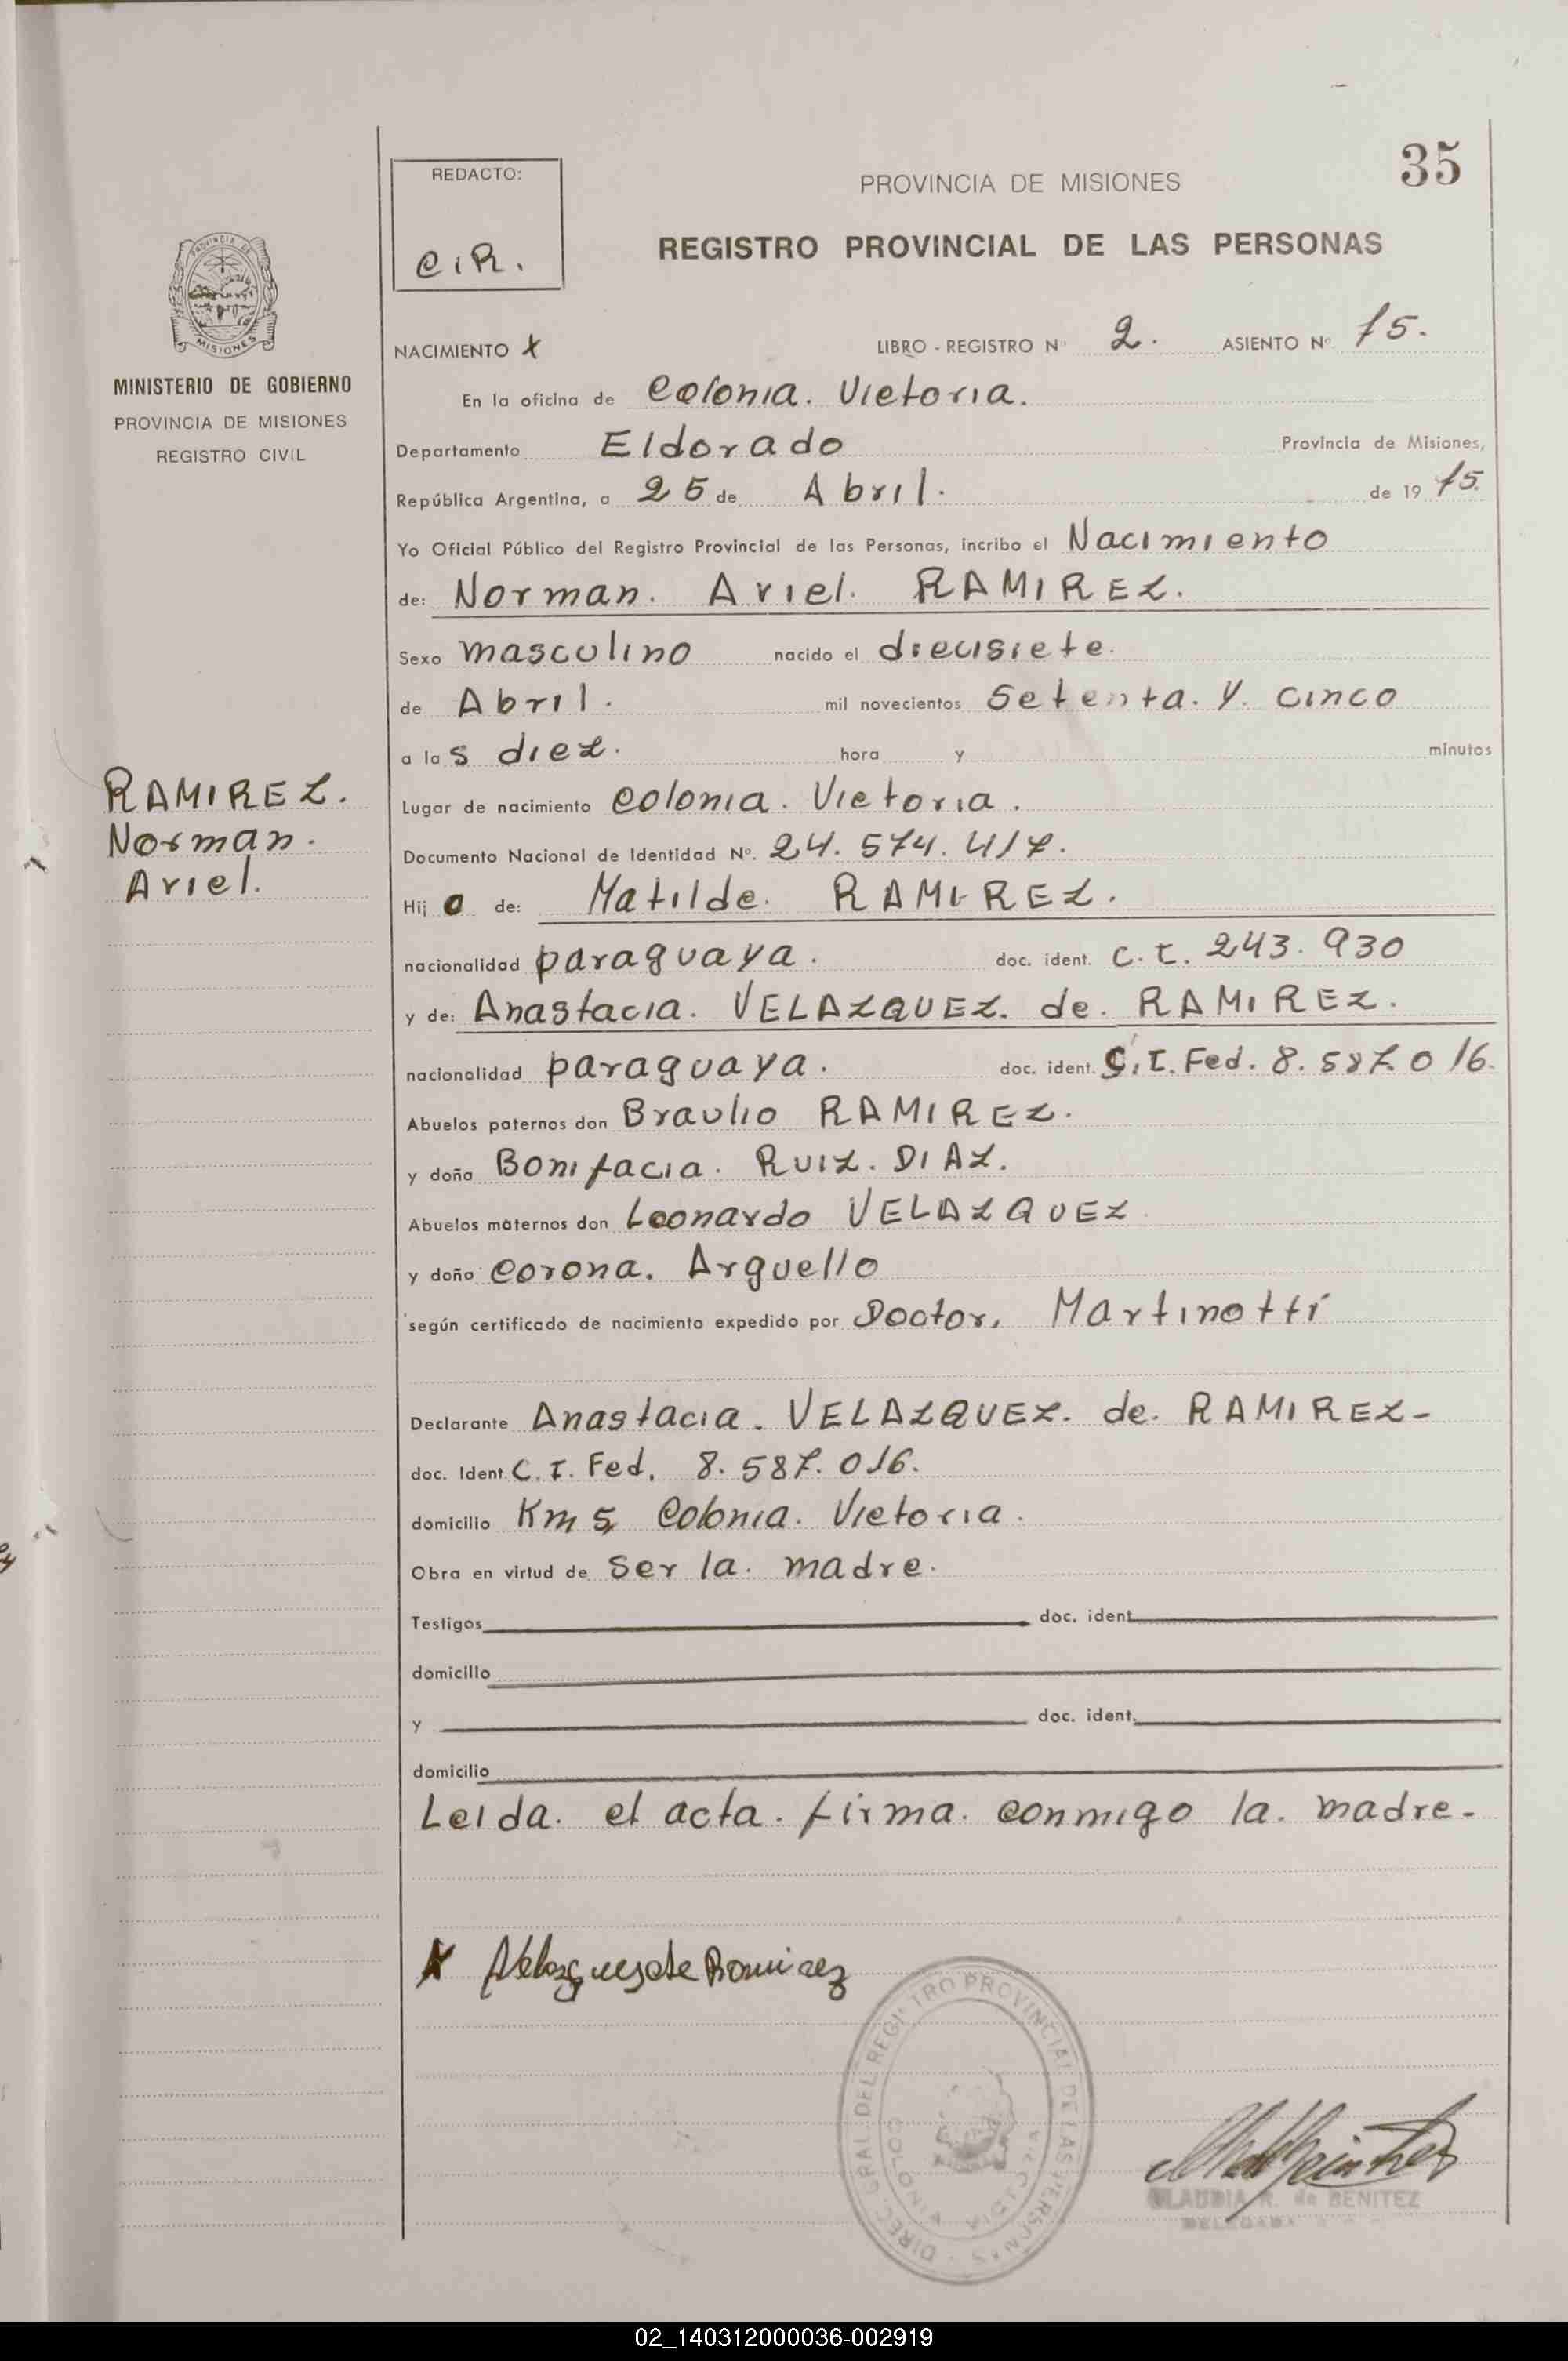 35
REDACTO:
C.R.
PROVINCIA DE MISIONES
REGISTRO PROVINCIAL DE LAS PERSONAS
PROVINCIA DE
MISIONES
MINISTERIO DE GOBIERNO
PROVINCIA DE MISIONES
REGISTRO CIVIL
NACIMIENTO X LIBRO - REGISTRO Nº 2. ASIENTO Nº 75.
En la oficina de Colonia. Victoria.
Departamento Eldorado Provincia de Misiones,
República Argentina, a 25 de Abril. de 19 75.
Yo Oficial Público del Registro Provincial de las Personas, incribo el Nacimiento
de: Norman. Ariel. RAMIREZ.
Sexo masculino nacido el diecisiete.
de Abril. mil novecientos Setenta. y. cinco
a las diez. hora y minutos
RAMIREZ.
Norman.
Ariel.
Lugar de nacimiento Colonia. Victoria.
Documento Nacional de Identidad Nº. 24. 574. 417.
Hijo de: Matilde. RAMIREZ.
nacionalidad paraguaya. doc. ident. C. I. 243. 930
y de: Anastacia. VELAZQUEZ. de. RAMIREZ.
nacionalidad paraguaya. doc. ident. C. I. Fed. 8. 587. 016.
Abuelos paternos don Braulio RAMIREZ.
y doña Bonifacia. RUIZ. DIAZ.
Abuelos maternos don Leonardo VELAZQUEZ
y doña Corona. Arguello
según certificado de nacimiento expedido por Doctor. Martinotti
Declarante Anastacia. VELAZQUEZ. de. RAMIREZ-
doc. Ident C. I. Fed. 8. 587. 016.
domicilio Km 5, Colonia. Victoria.
Obra en virtud de Ser la. madre.
Testigos doc. ident
domicilio
y doc. ident.
domicilio
Leida. el acta. firma. conmigo la. madre-
X AVelazquez de Ramirez
DIREC. GRAL. DEL REGISTRO PROVINCIAL DE LAS PERSONAS
COLONIA VICTORIA
CLAUDIA R. de BENITEZ
DELEGADA
02_140312000036-002919